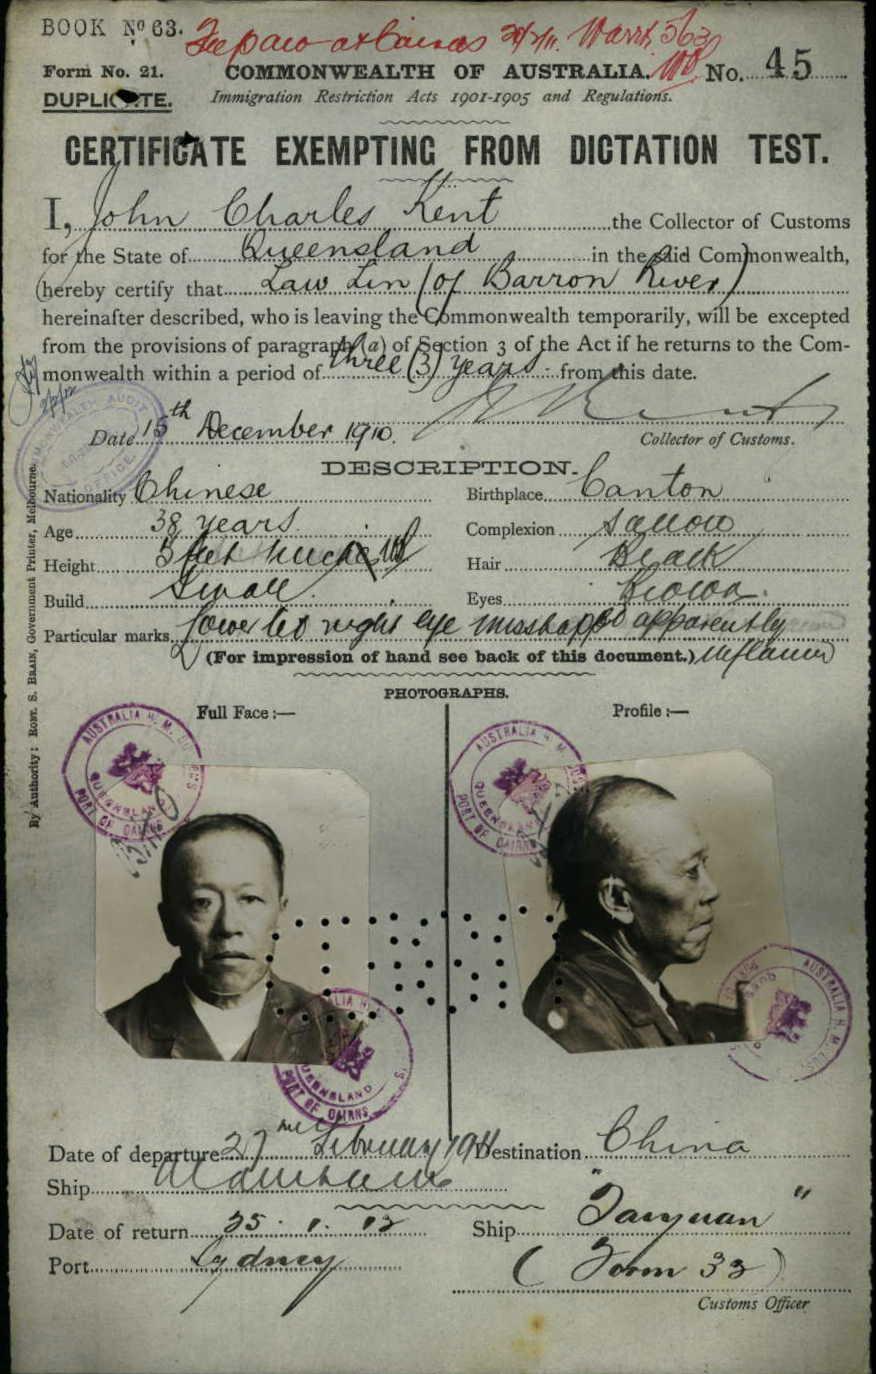 BOOK No 63.
Fee paid at Cairns
Form No. 21.
COMMONWEALTH OF AUSTRALIA.
No. 45
DUPLICATE.
Immigration Restriction Acts 1901-1905 and Regulations.
CERTIFICATE EXEMPTING FROM DICTATION TEST.
I, John Charles Kent the Collector of Customs
for the State of Queensland in the said Commonwealth,
hereby certify that Law Lin (of Barron River)
hereinafter described, who is leaving the Commonwealth temporarily, will be excepted
from the provisions of paragraph (a) of Section 3 of the Act if he returns to the Com-
monwealth within a period of three (3) years from this date.
Date 15th December 1910.
Collector of Customs.
DESCRIPTION.
Nationality Chinese
Birthplace Canton
Age 38 years.
Complexion Sallow
Height 5 feet inches
Hair Black
Build Small.
Eyes Brown.
Particular marks lower lid right eye misshaped apparently
inflamed
(For impression of hand see back of this document.)
PHOTOGRAPHS.
Full Face :—
Profile :—
AUSTRALIA H. M. CUSTOMS
QUEENSLAND
PORT OF CAIRNS
AUSTRALIA H. M. CUSTOMS
QUEENSLAND
PORT OF CAIRNS
QUEENSLAND
PORT OF CAIRNS
AUSTRALIA H. M. CUST
Date of departure 27 February 1911
Destination China
Ship
Date of return 25. 1. 12
Ship "Taiyuan"
Port Sydney
(Form 32)
Customs Officer
By Authority: ROBT. S. BRAIN, Government Printer, Melbourne.